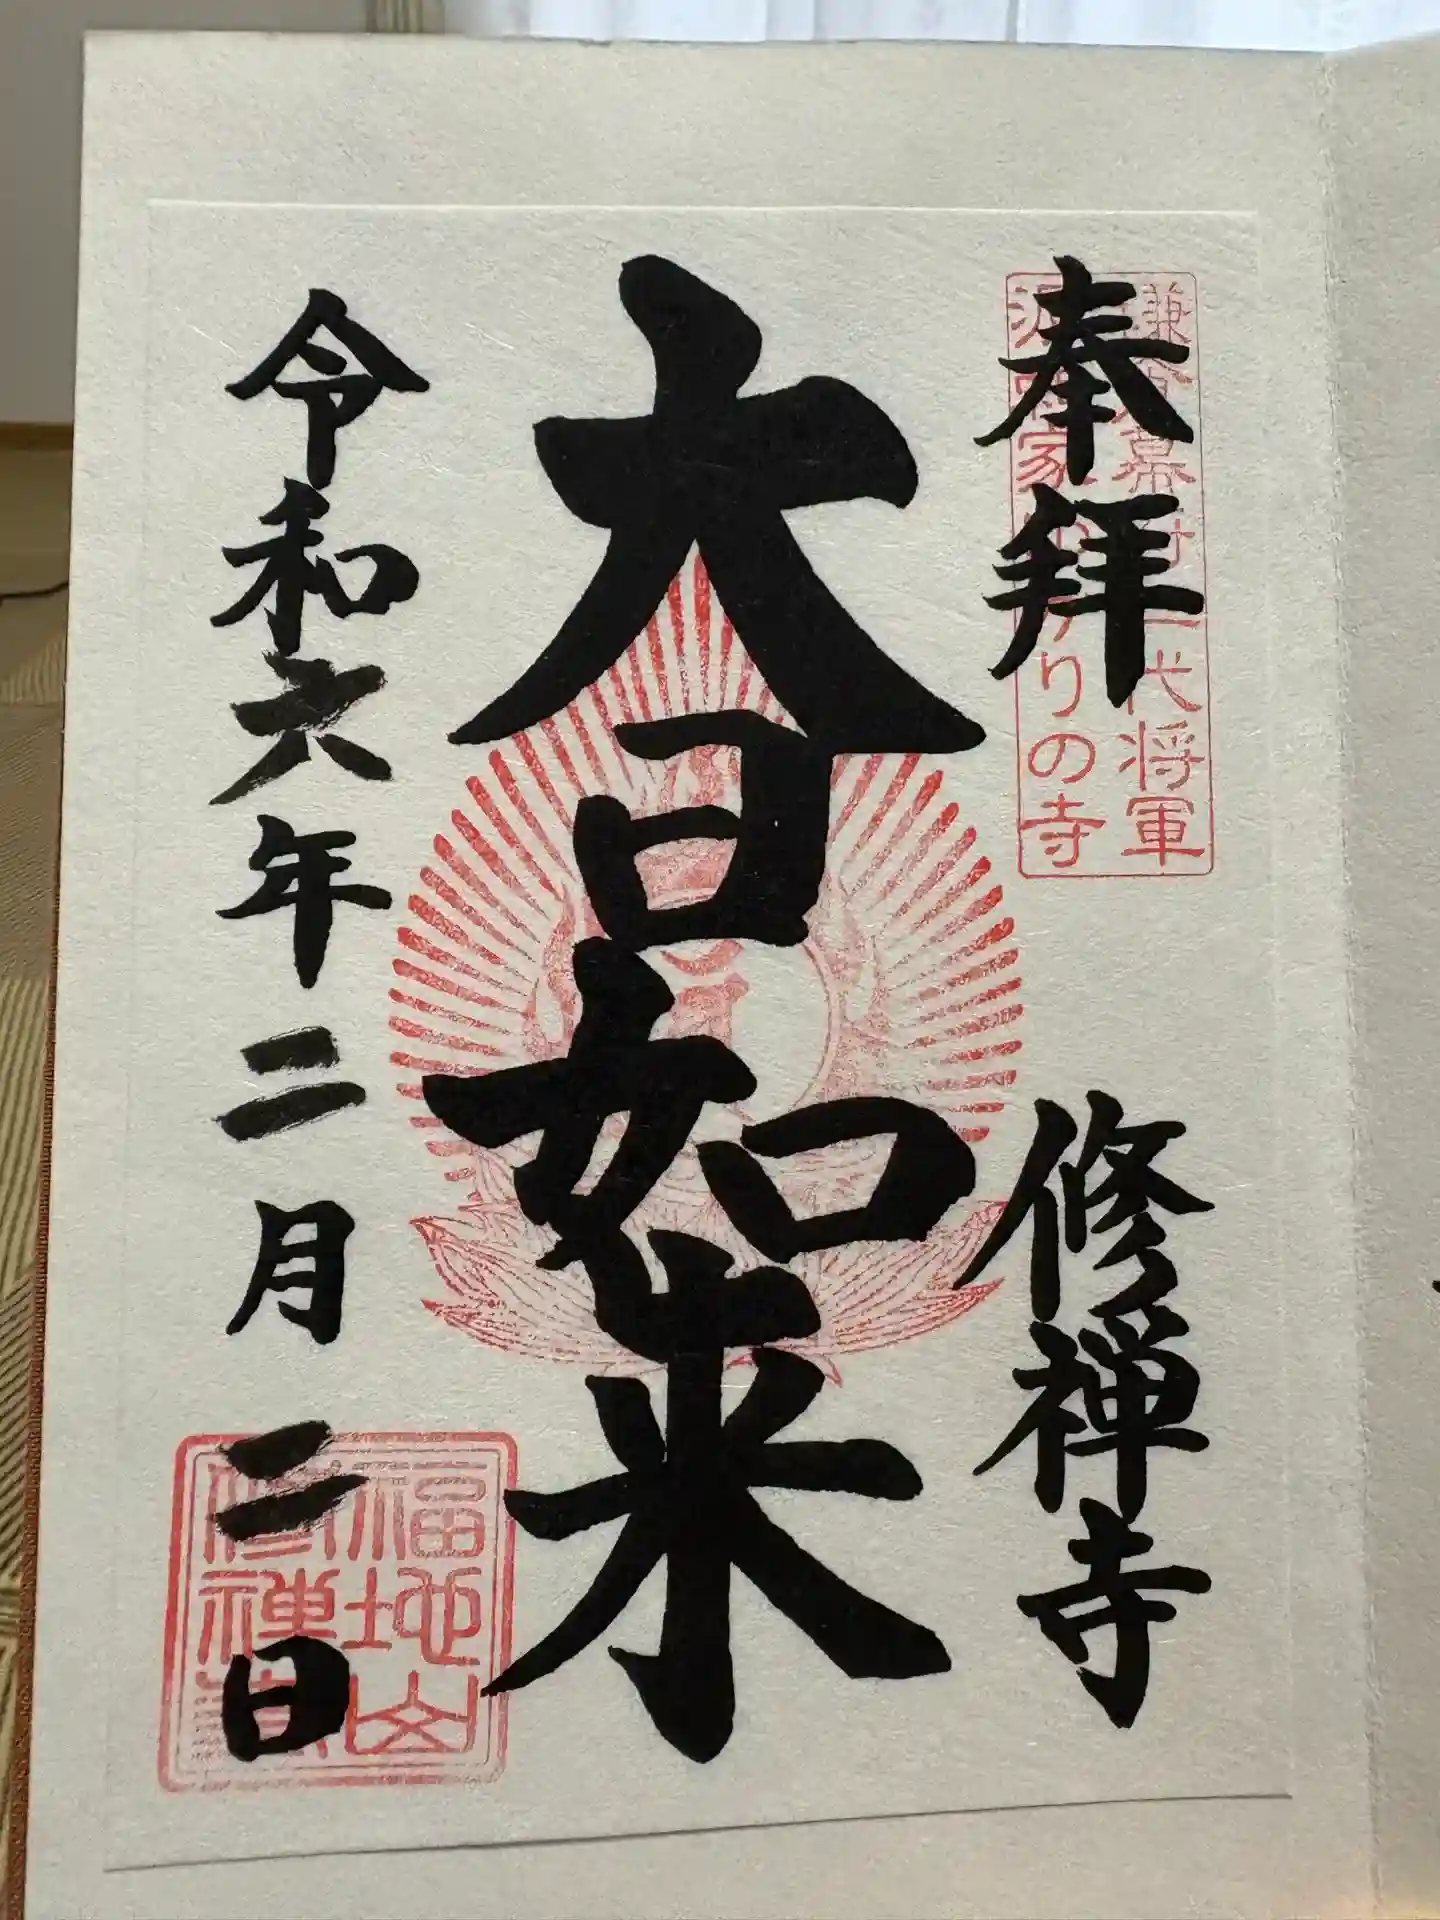 奉拝
鎌倉幕府二代将軍
源頼家ゆかりの寺
修禅寺
大日如来
令和六年二月二日
福地山
修禅寺